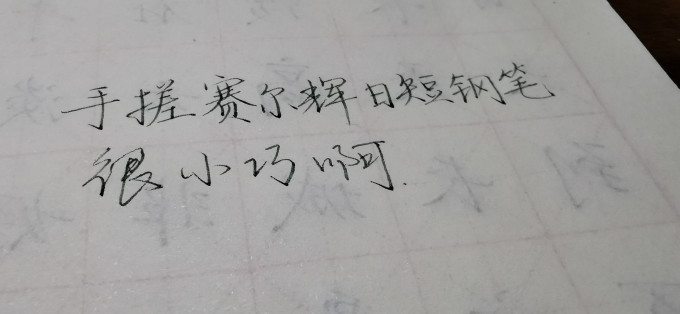 手搓赛尔辉日短钢笔
很小巧啊.